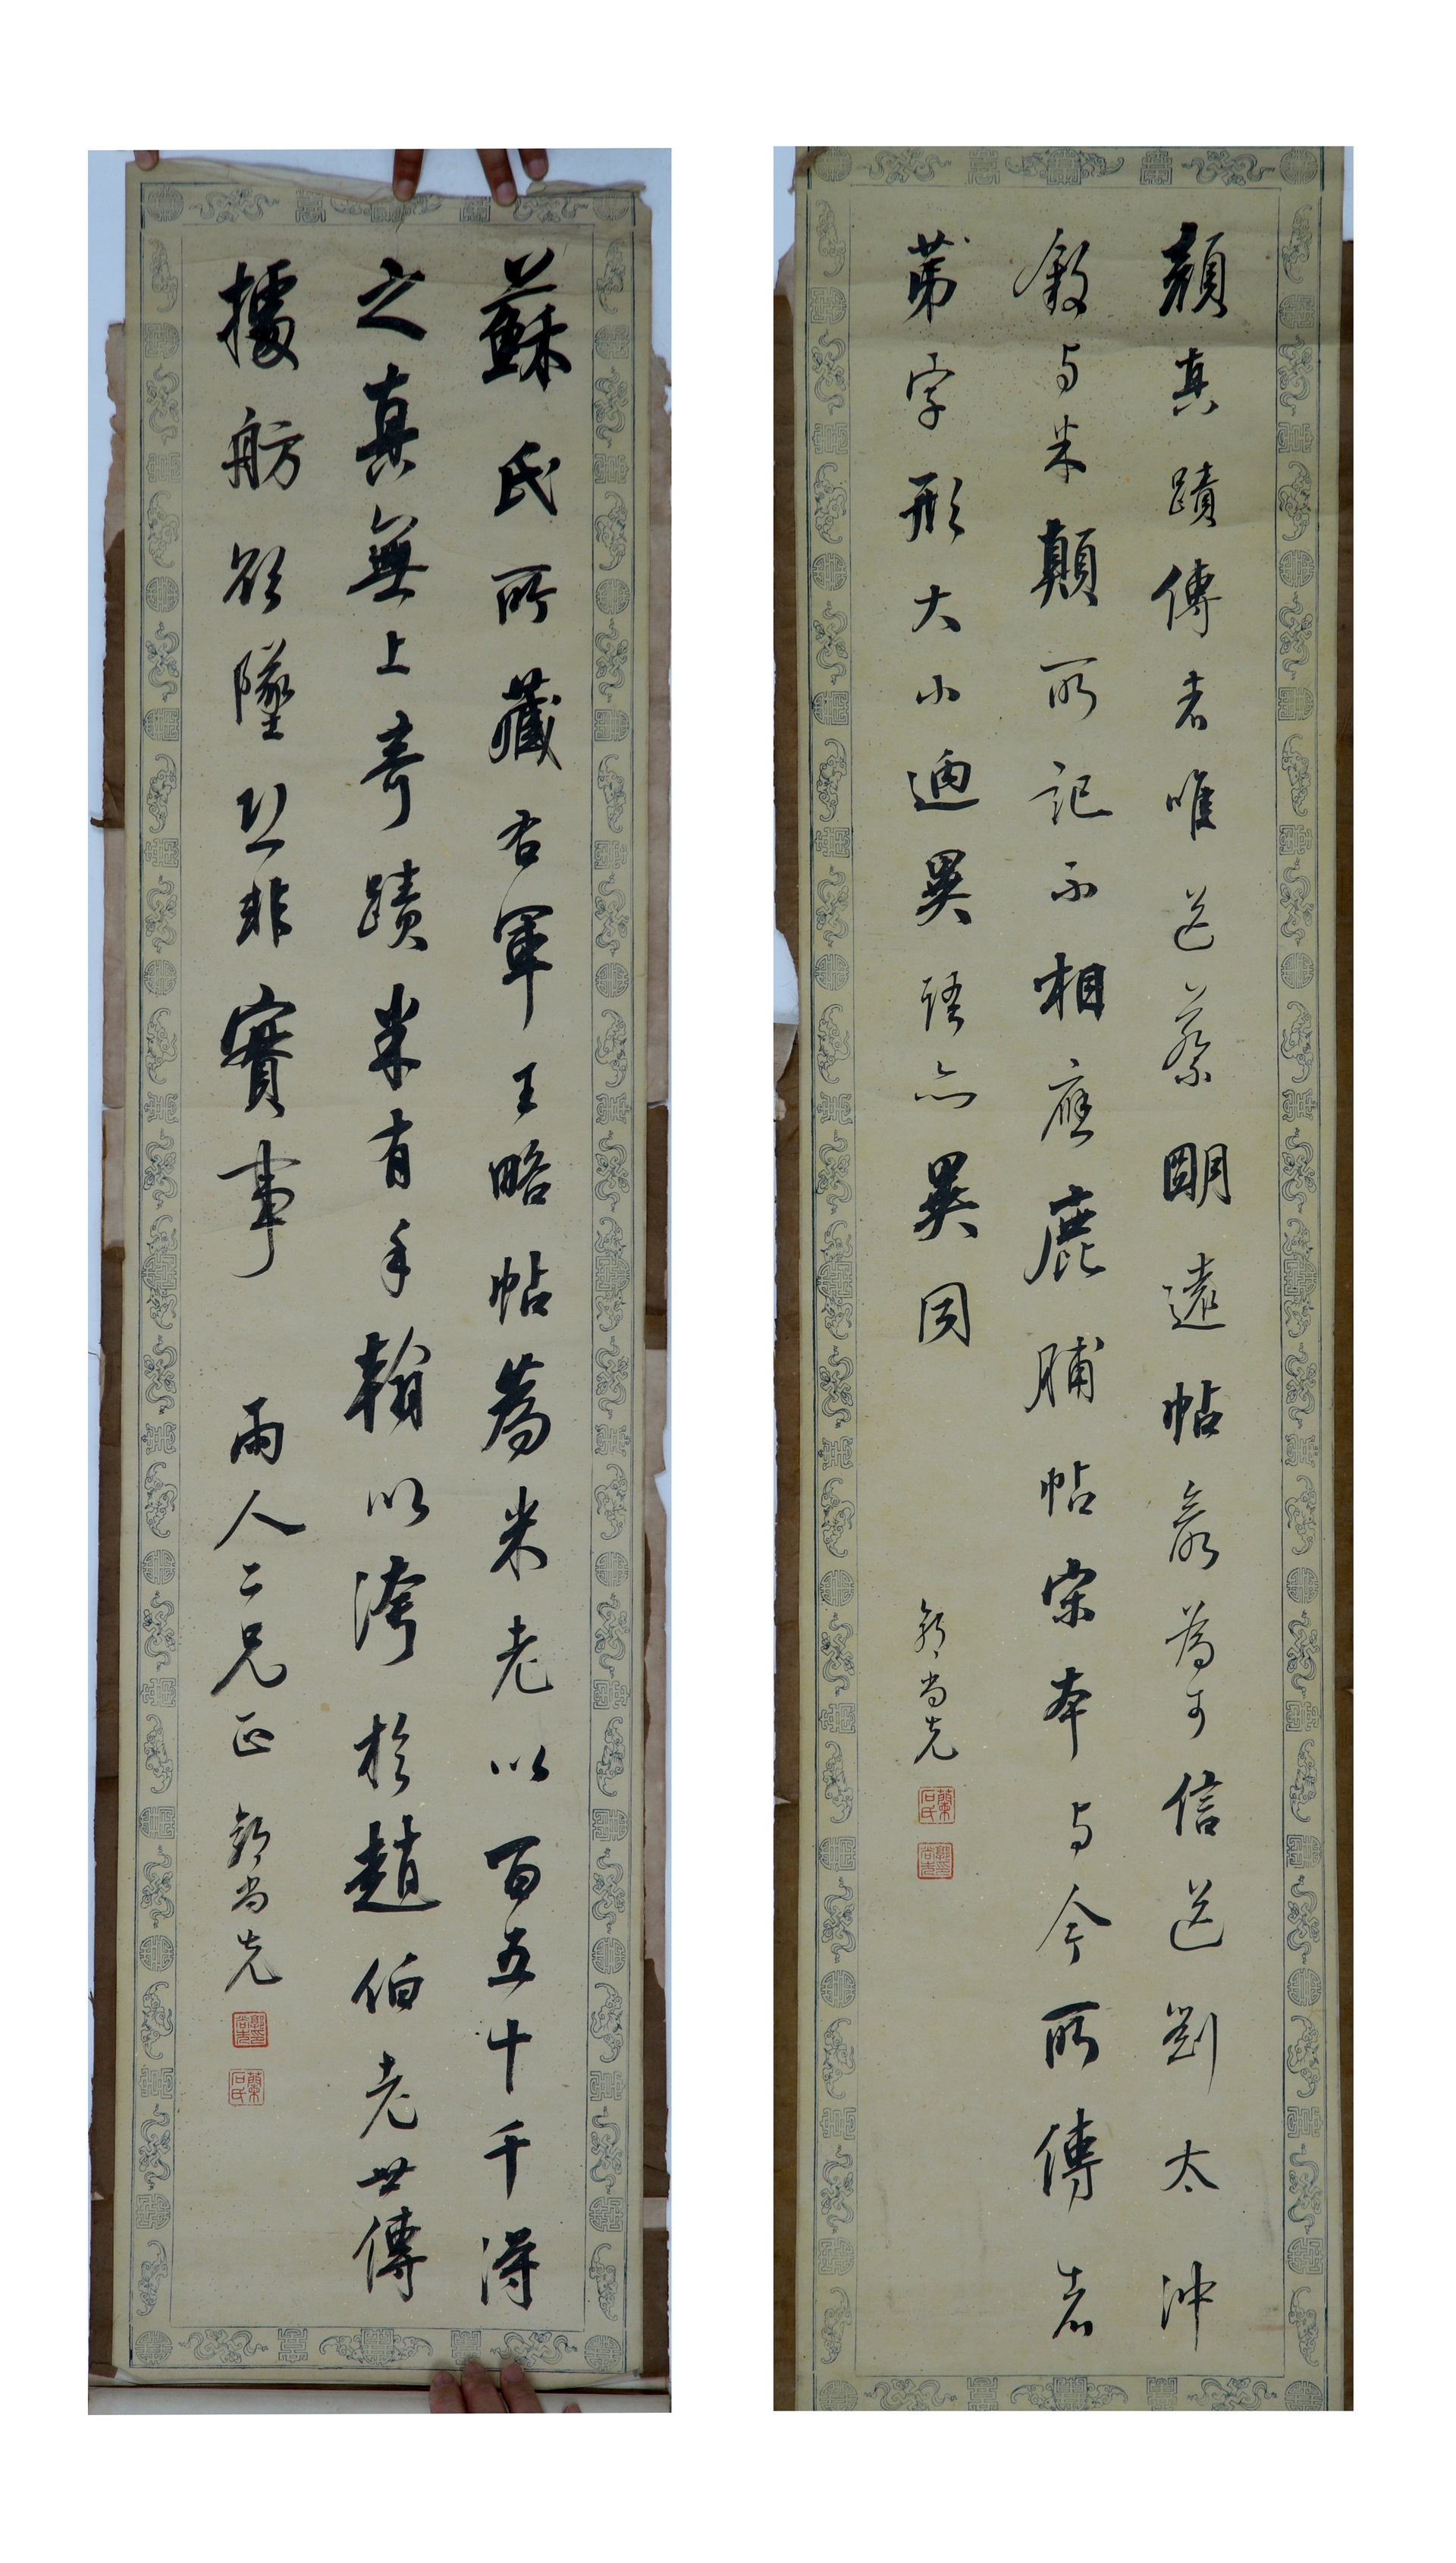 顏真蹟傳者唯送蔡朙遠帖最為可信送劉太沖
敘与米顛所記不相應鹿脯帖宋本与今所傳者
苐字形大小逈異語亦異同
郭尚先
蘭石氏
郭印尚先
蘇氏所藏右軍王略帖為米老以百五十千得
之真無上奇蹟米有手翰以誇於趙伯老世傳
據舫欲墜恐非實事 雨人二兄正 郭尚先
郭印尚先
蘭石氏